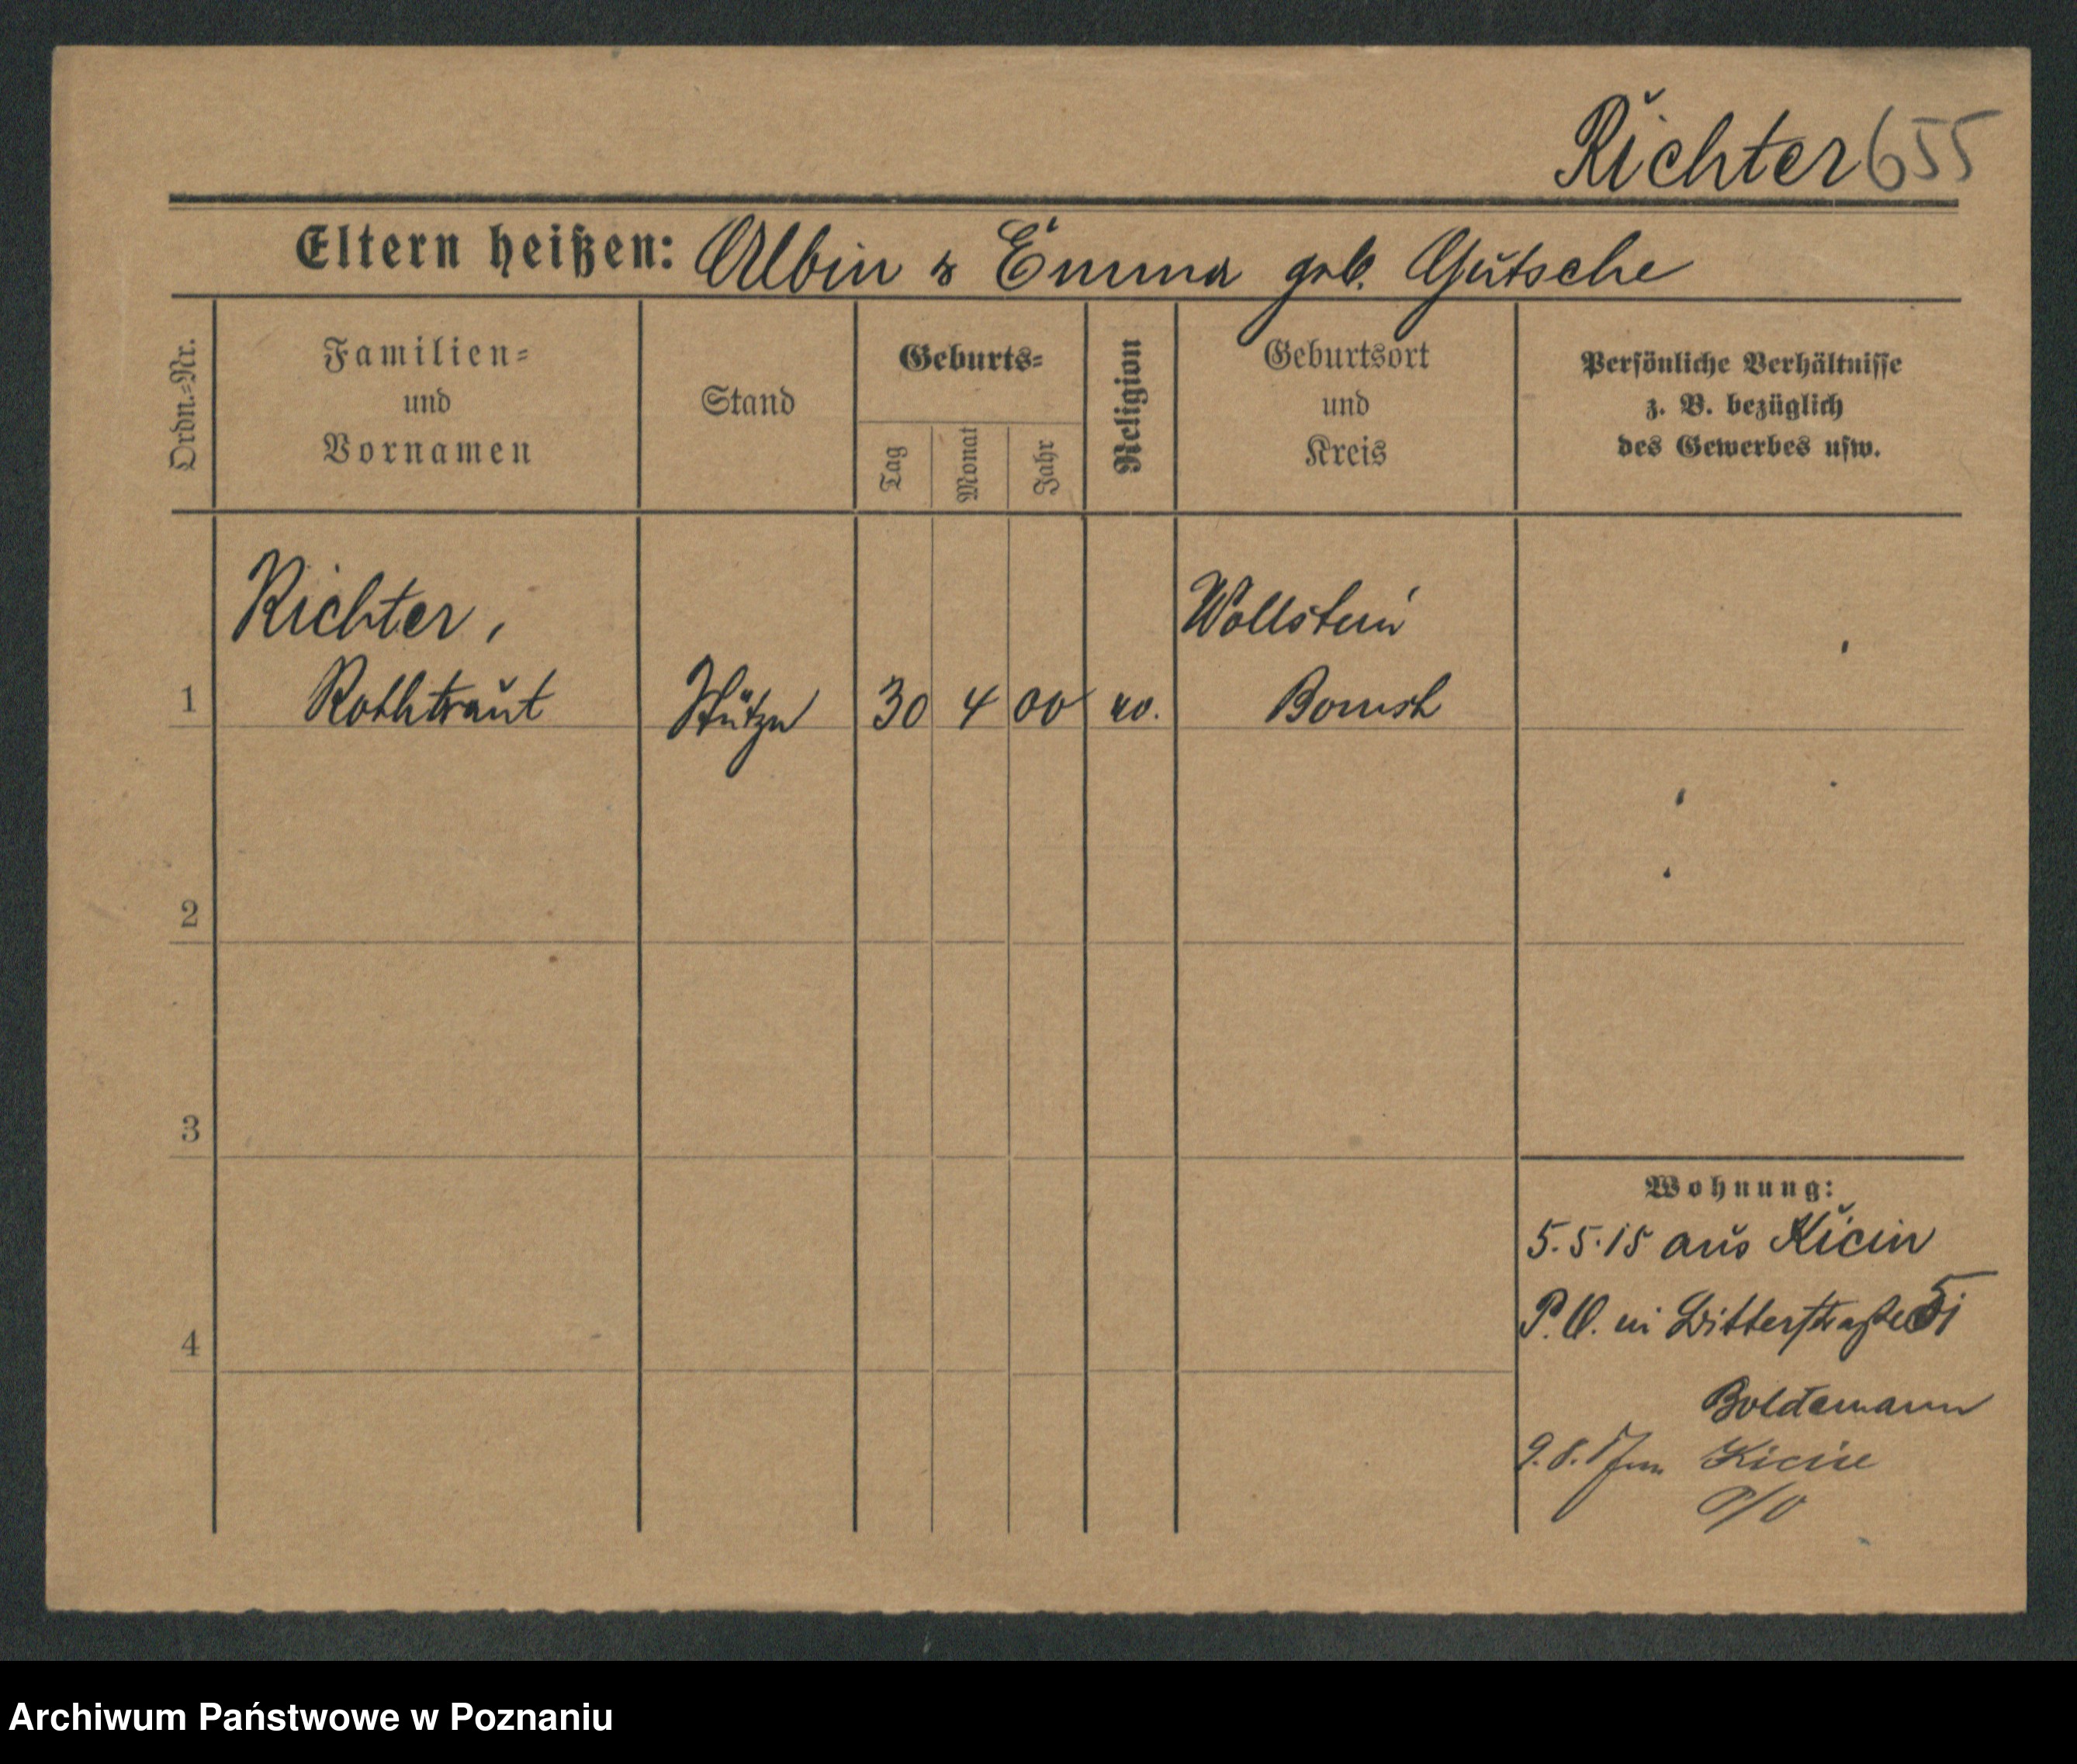 Richter 655
Eltern heißen: Albin & Emma geb. Gutsche
Ordn.=Nr.
Familien=
und
Vornamen
Stand
Geburts=
Tag
Monat
Jahr
Religion
Geburtsort
und
Kreis
Persönliche Verhältnisse
z. B. bezüglich
des Gewerbes usw.
Richter,
Wollstein
1 Rothtraut Stütze 30 4 00 ev. Bomst
2
3
4
Wohnung:
5.5.15 aus Kicin
P.O. in Ritterstraße
Boldemann
9.8. Kicin
P/O
Archiwum Państwowe w Poznaniu